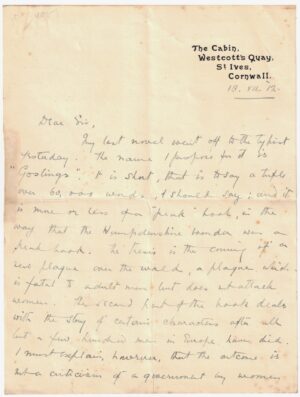 The Cabin,
Westcott's Quay,
St Ives,
Cornwall.
13. VII. 12.
Dear Sir,
My last novel went off to the typist
yesterday. The name I propose for it is
"Goslings". It is short, that is to say a trifle
over 60,000 words, I should say; and it
is more or less of a "freak" book, in the
way that the Hampdenshire Wonder was a
freak book. The thesis is the coming of a
new plague over the world, a plague which
is fatal to adult men but does not attack
women. The second part of the book deals
with the story of certain characters after all
but a few hundred men in Europe have died.
I must explain, however, that the outcome is
not a criticism of a government by women